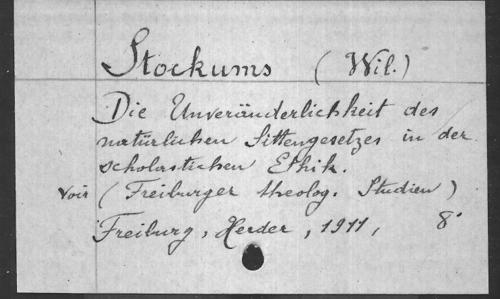 Stockums (Wil.)
Die Unveränderlichkeit des
natürlichen Sittengesetzes in der
scholastichen Ethik.
voir (Freiburger theolog. Studien)
Freiburg, Herder, 1911, 8°